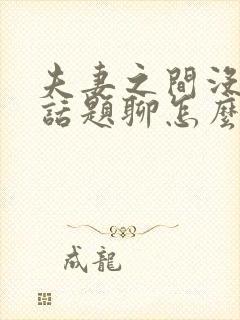 夫妻之間沒
話題聊怎麼
成龍